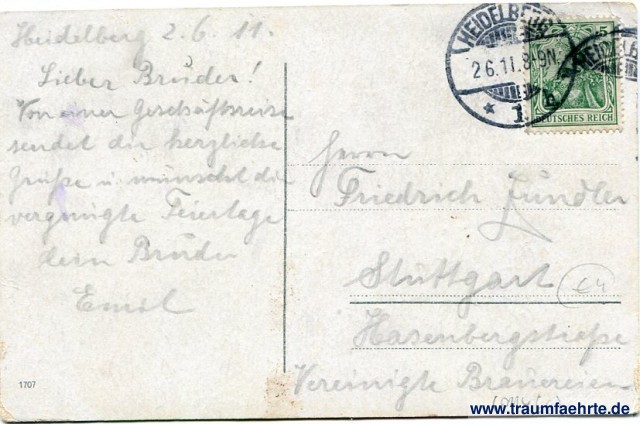 Heidelberg 2.6.11.
Lieber Bruder!
Von einer Geschäftsreise
sendet dir herzliche
Grüße u wünscht dir
vergnügte Feiertage
dein Bruder
Emil
1707
HEIDELBERG
2.6.11.8-9N.
1
5
DEUTSCHES REICH
Herrn
Friedrich Zundler
Stuttgart
Hasenbergstraße
Vereinigte Brauereien
www.traumfaehrte.de